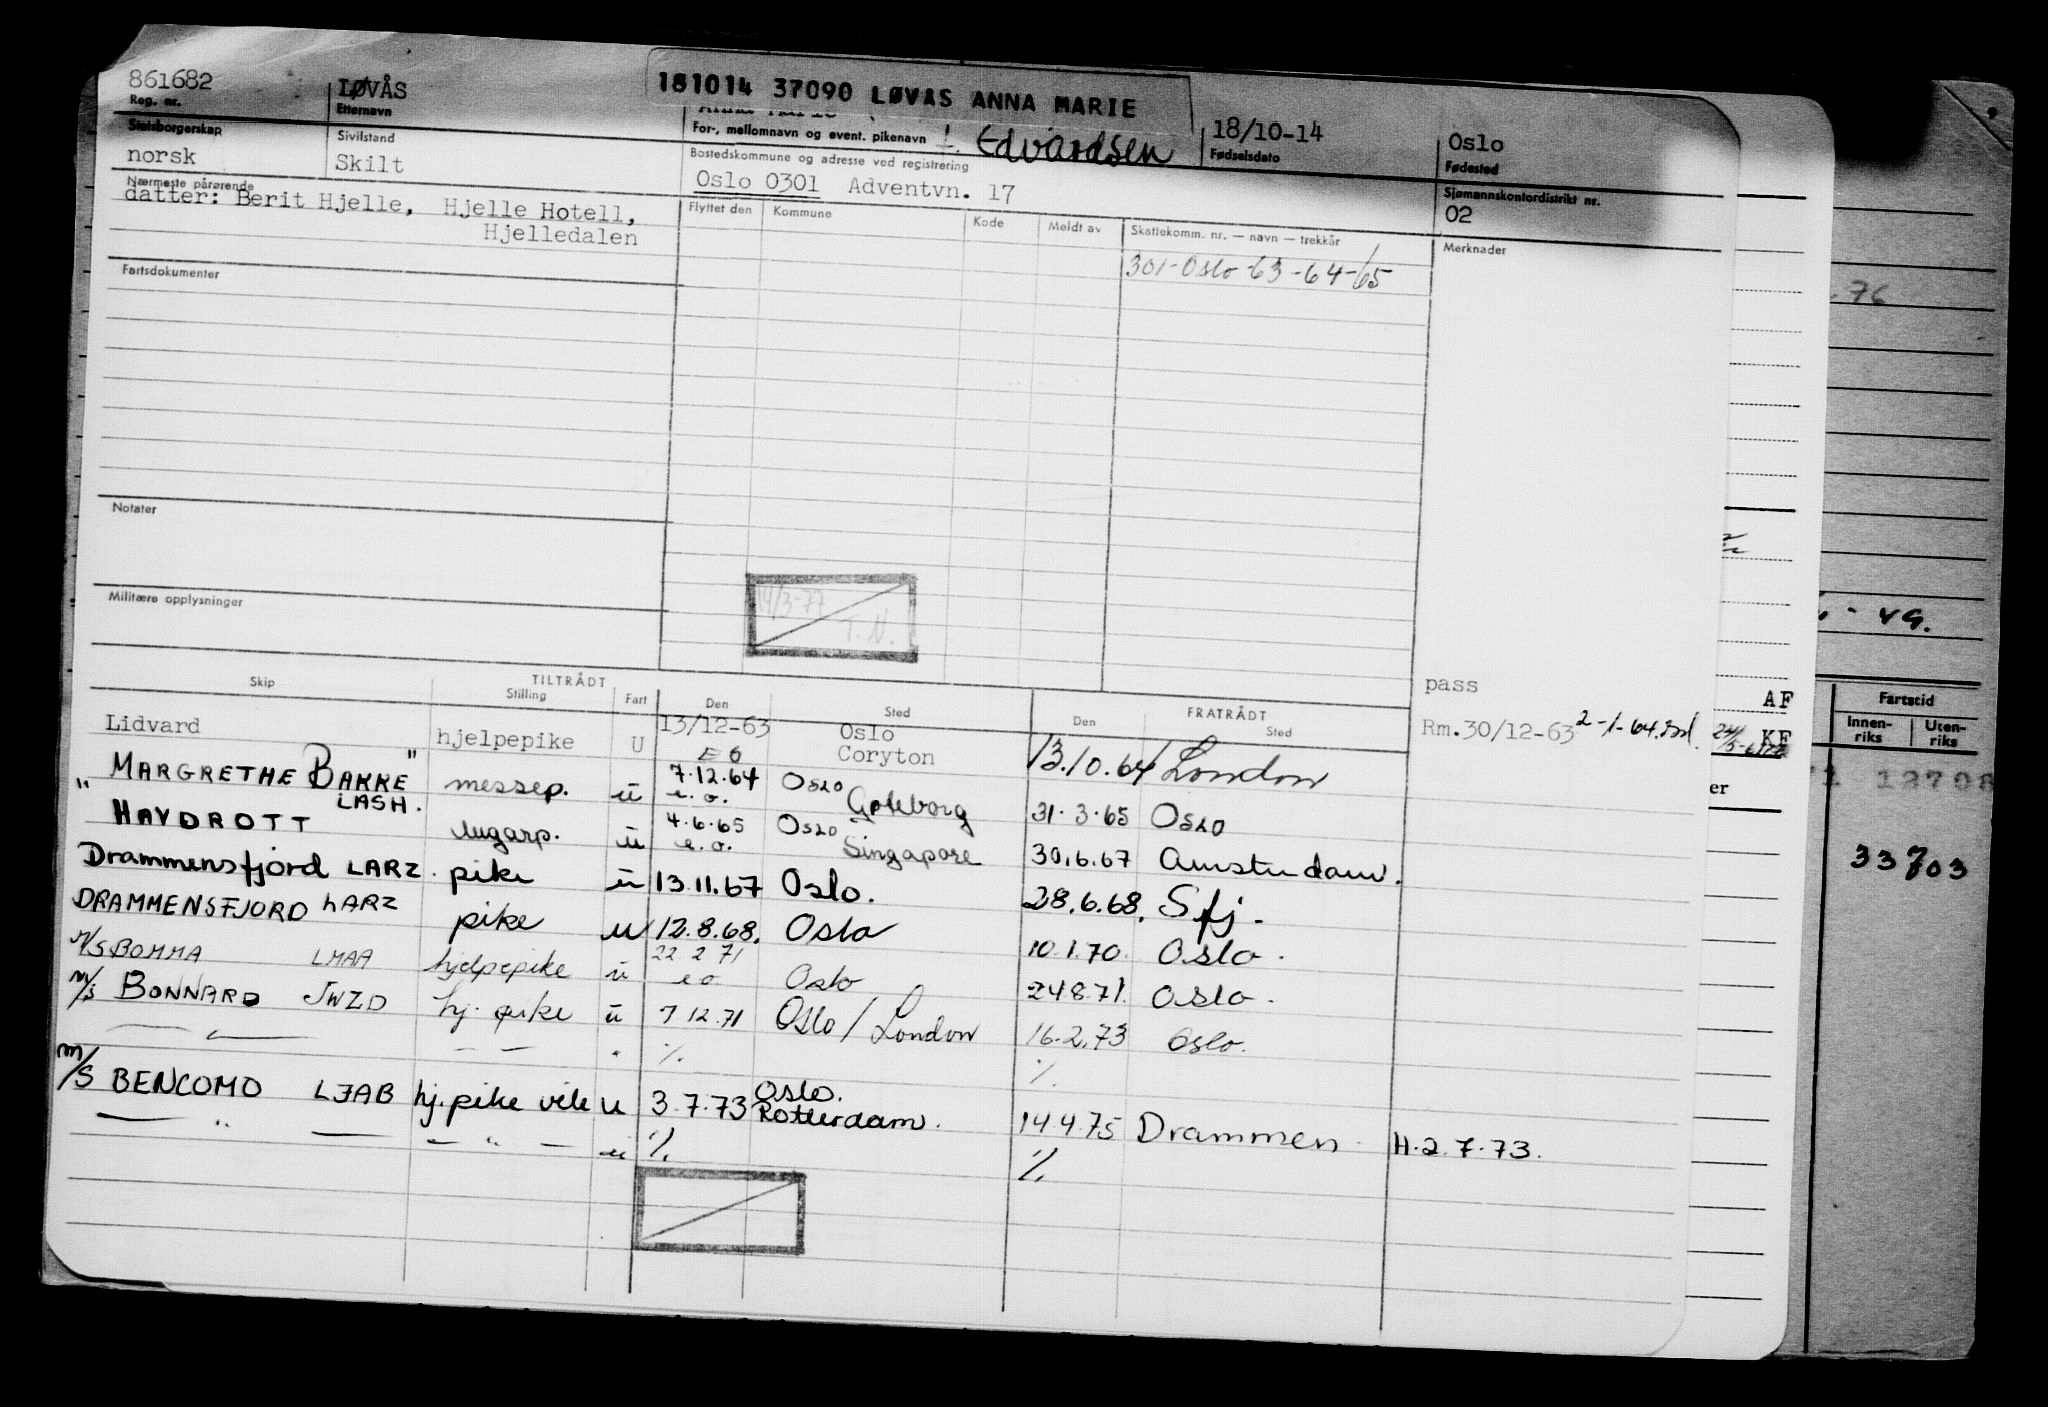 861682 LØVÅS 181014 37090 LØVÅS ANNA MARIE 18/10-14 Oslo
Reg. nr. Etternavn For-, mellomnavn og event. pikenavn f. Edvardsen Fødselsdato Fødested
Statsborgerskap Sivilstand Bostedskommune og adresse ved registrering Sjømannskontordistrikt nr.
norsk Skilt Oslo 0301 Adventvn. 17 02
Nærmeste pårørende Flyttet den Kommune Kode Meldt av Skattekomm. nr. — navn — trekkår Merknader
datter: Berit Hjelle, Hjelle Hotell,
Hjelledalen
301-Oslo-63-64-65
Fartsdokumenter
Notater
14/3-77
T.N.
Militære opplysninger
pass
TILTRÅDT FRATRÅDT
Skip Stilling Fart Den Sted Den Sted
Lidvard hjelpepike U 13/12-63 Oslo
EO Coryton 13.10.64 London Rm.30/12-63 2-1-64.
"MARGRETHE BAKKE" LASH. messep. u 7.12.64 e.o. Oslo Göteborg 31.3.65 Oslo
"HAVDROTT lugarp. u 4.6.65 e.o. Oslo Singapore 30.6.67 Amsterdam.
Drammensfjord LARZ. pike u 13.11.67 Oslo. 28.6.68. Sfj.
DRAMMENSFJORD LARZ pike u 12.8.68. Oslo 10.1.70. Oslo.
M/S BOMMA LMAA hjelpepike u 22 2 71 eo Oslo 24.8.71. Oslo.
M/S BONNARD JWZD hj. pike u 7.12.71 Oslo/London 16.2.73 Oslo.
— " — — — " %. %.
M/S BENCOMO LJAB hj.pike vik u 3.7.73 Oslo. Rotterdam. 14.4.75 Drammen. H.2.7.73.
— " — — " — u %. %.
76
AF
KF
er
Fartstid
Innen-riks Uten-riks
33703